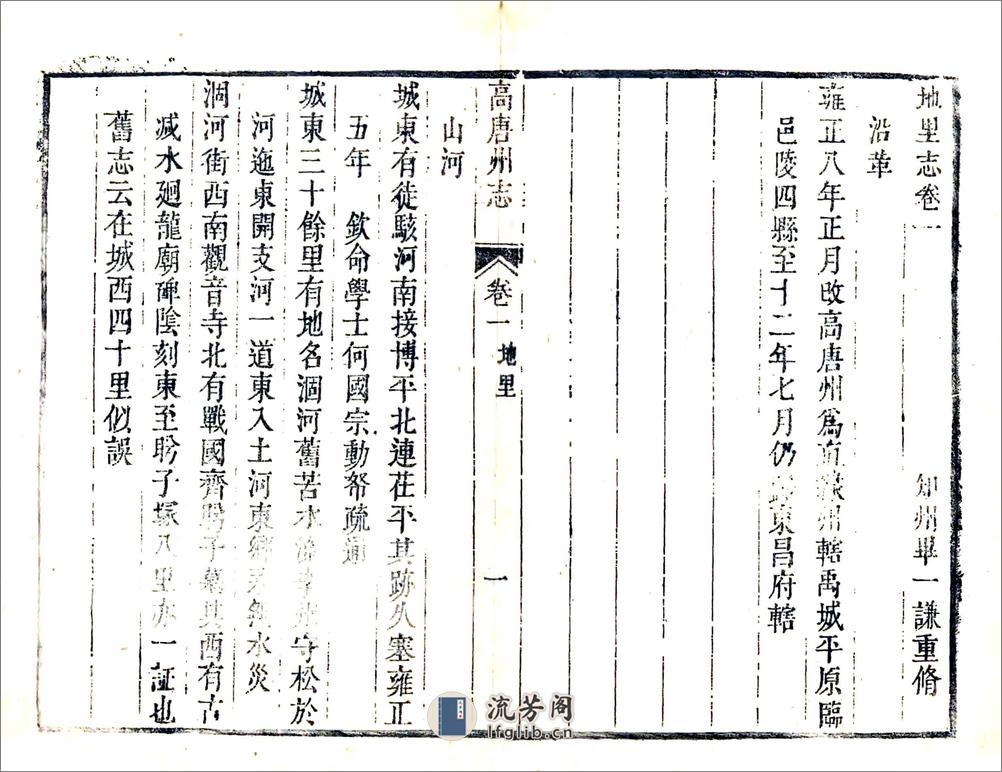 地里志卷一
知州畢一謙重脩
沿革
雍正八年正月改高唐州為直隸州轄禹城平原臨
邑陵四縣至十二年七月仍歸東昌府轄
高唐州志 卷一 地里 一
山河
城東有徒駭河南接博平北連茌平其跡久塞雍正
五年 欽命學士何國宗動帑疏通
城東三十餘里有地名涸河舊苦水 守松於
河迤東開支河一道東入土河東鄉 無水災
涸河街西南觀音寺北有戰國齊盻子墓其西有古
减水廻龍廟碑陰刻東至盻子塚八里亦一証也
舊志云在城西四十里似誤
流芳阁
lfglib.cn